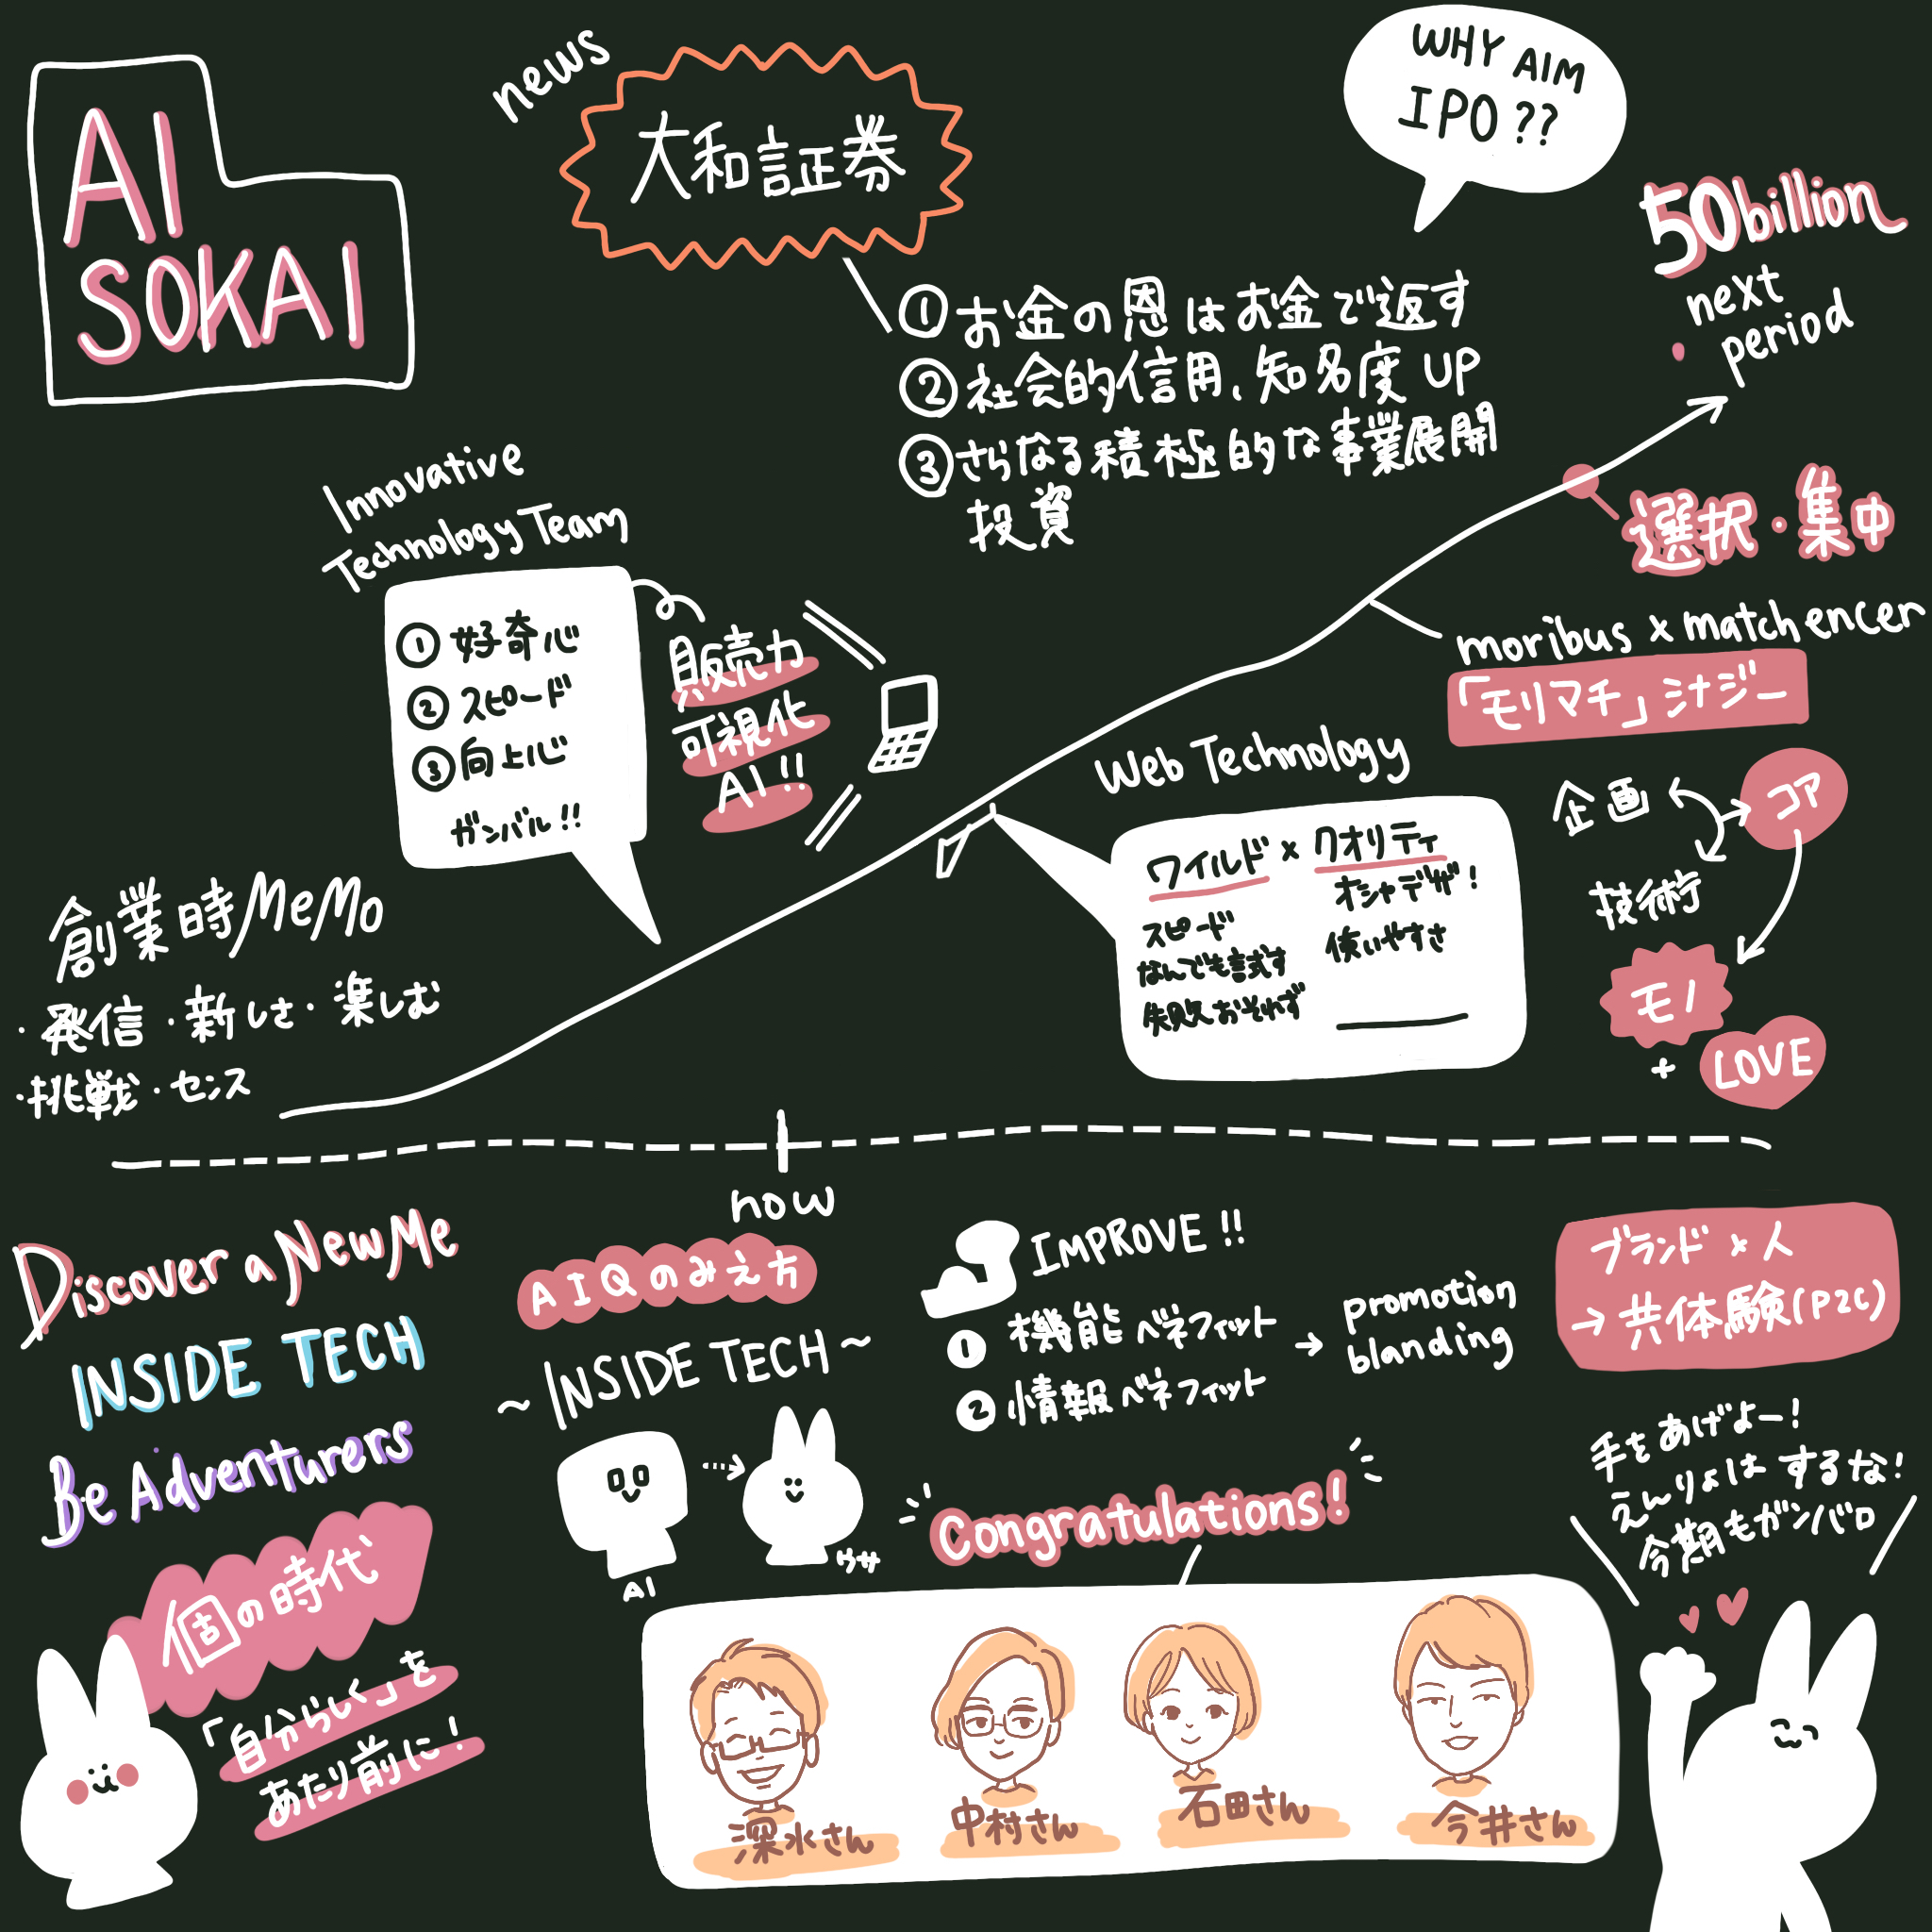 AI
SOKAI
news
大和証券
WHY AIM
IPO ??
① お金の恩はお金で返す
② 社会的信用、知名度 UP
③ さらなる積極的な事業展開
投資
50billion
next
period
選択・集中
Innovative
Technology Team
① 好奇心
② スピード
③ 向上心
ガンバル!!
販売力
可視化
AI!!
moribus × match encer
「モリマチ」シナジー
Web Technology
ワイルド × クオリティ
オシャデザ!
スピード
使いやすさ
なんでも試す
失敗をおそれず
企画
コア
技術
モノ
+
LOVE
創業時MeMo
・発信・新しさ・楽しむ
・挑戦・センス
now
Discover a New Me
INSIDE TECH
Be Adventurers
個の時代
「自分らしく」を
あたり前に!
AIQのみえ方
~ INSIDE TECH ~
AI
ウサ
IMPROVE !!
① 機能ベネフィット
② 情報ベネフィット
→ promotion
blanding
ブランド × 人
→ 共体験(P2C)
Congratulations!
深水さん
中村さん
石田さん
今井さん
手をあげよー!
えんりょはするな!
今期もガンバロ